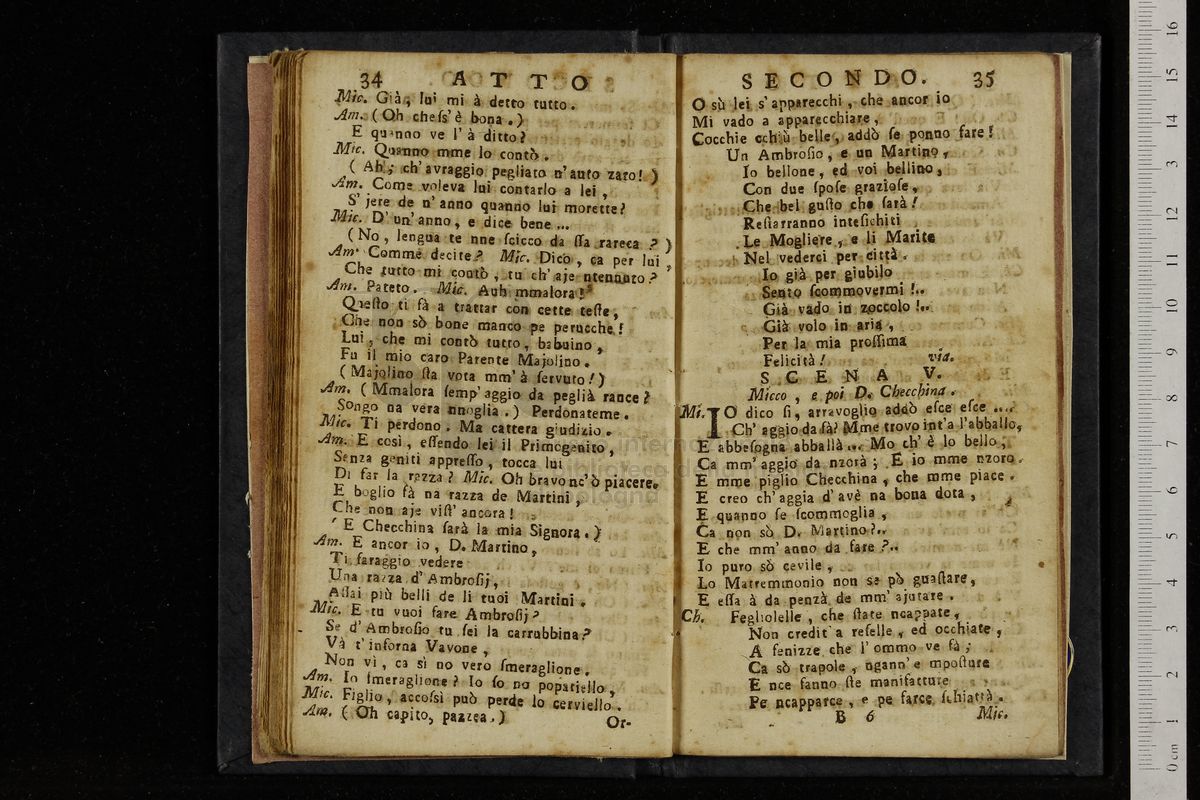 34 ATTO
Mic. Già, lui mi à detto tutto.
Am. (Oh cheſs' è bona.)
E quanno ve l' à ditto?
Mic. Quanno mme lo contò.
(Ah, ch' avraggio pegliato n' auto zaro!)
Am. Come voleva lui contarlo a lei,
S' jere de n' anno quanno lui morette?
Mic. D' un' anno, e dice bene...
(No, lengua te nne ſcicco da ſſa rareca?)
Am. Comme decite? Mic. Dico, ca per lui,
Che tutto mi contò, tu ch' aje ntennuto?
Am. Pateto. Mic. Auh mmalora!
Queſto ti fà a trattar con cette teſte,
Che non sò bone manco pe perucche!
Lui, che mi contò tutto, babuino,
Fu il mio caro Parente Majolino.
(Majolino ſta vota mm' à ſervuto!)
Am. (Mmalora ſemp' aggio da peglià rance?
Songo na vera nnoglia.) Perdonateme.
Mic. Ti perdono. Ma cattera giudizio.
Am. E così, eſſendo lei il Primogenito,
Senza geniti appreſſo, tocca lui
Di far la razza? Mic. Oh bravo nc' ò piacere.
E boglio fà na razza de Martini,
Che non aje viſt' ancora!
(E Checchina ſarà la mia Signora.)
Am. E ancor io, D. Martino,
Ti faraggio vedere
Una razza d' Ambroſij,
Aſſai più belli de li tuoi Martini.
Mic. E tu vuoi fare Ambroſij?
Se d' Ambroſio tu ſei la carrubbina?
Và t' inforna Vavone,
Non vì, ca sì no vero ſmeraglione.
Am. Io ſmeraglione? Io ſo no popatiello,
Mic. Figlio, accoſsì può perde lo cerviello.
Am. (Oh capito, pazzea.)
Or-
SECONDO. 35
O sù lei s' apparecchi, che ancor io
Mi vado a apparecchiare,
Cocchie cchiù belle, addò ſe ponno fare!
Un Ambroſio, e un Martino,
Io bellone, ed voi bellino,
Con due ſpoſe grazioſe,
Che bel guſto che ſarà!
Reſtarranno inteſichiti
Le Mogliere, e li Marite
Nel vederci per città.
Io già per giubilo
Sento ſcommovermi!..
Già vado in zoccolo!..
Già volo in aria,
Per la mia proſſima
Felicità! via.
SCENA V.
Micco, e poi D. Checchina.
Mi. IO dico ſi, arravoglio addò eſce eſce ....
Ch' aggio da fà? Mme trovo int' a l' abballo,
E abbeſogna abballà... Mo ch' è lo bello,
Ca mm' aggio da nzorà; E io mme nzoro.
E mme piglio Checchina, che mme piace.
E creo ch' aggia d' avè na bona dota,
E quanno ſe ſcommoglia,
Ca non sò D. Martino?..
E che mm' anno da fare?..
Io puro sò cevile,
Lo Matremmonio non se pò guaſtare,
E eſſa à da penzà de mm' ajutare.
Ch. Fegliolelle, che ſtate ncappate,
Non credit' a reſelle, ed occhiate,
A fenizze che l' ommo ve fà;
Ca sò trapole, ngann' e mpoſture
E nce fanno ſte manifatture
Pe ncapparce, e pe farce ſchiattà.
B 6 Mic.